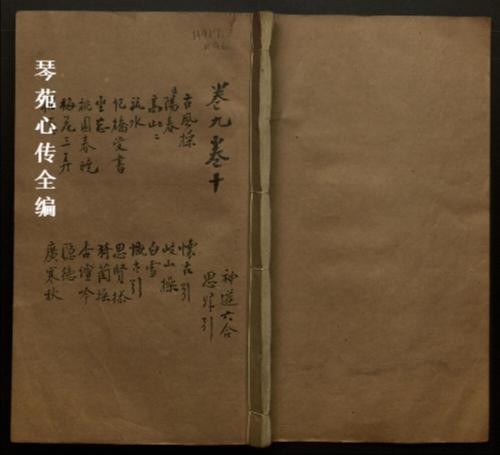 琴苑心传全编
卷九卷十
古風操
陽春
高山
流水
圯橋受書
坐忘
桃園春曉
梅花三弄
神遊六合
思歸引
懷古引
岐山操
白雪
慨古引
思賢操
猗蘭操
杏壇吟
隱德
廣寒秋